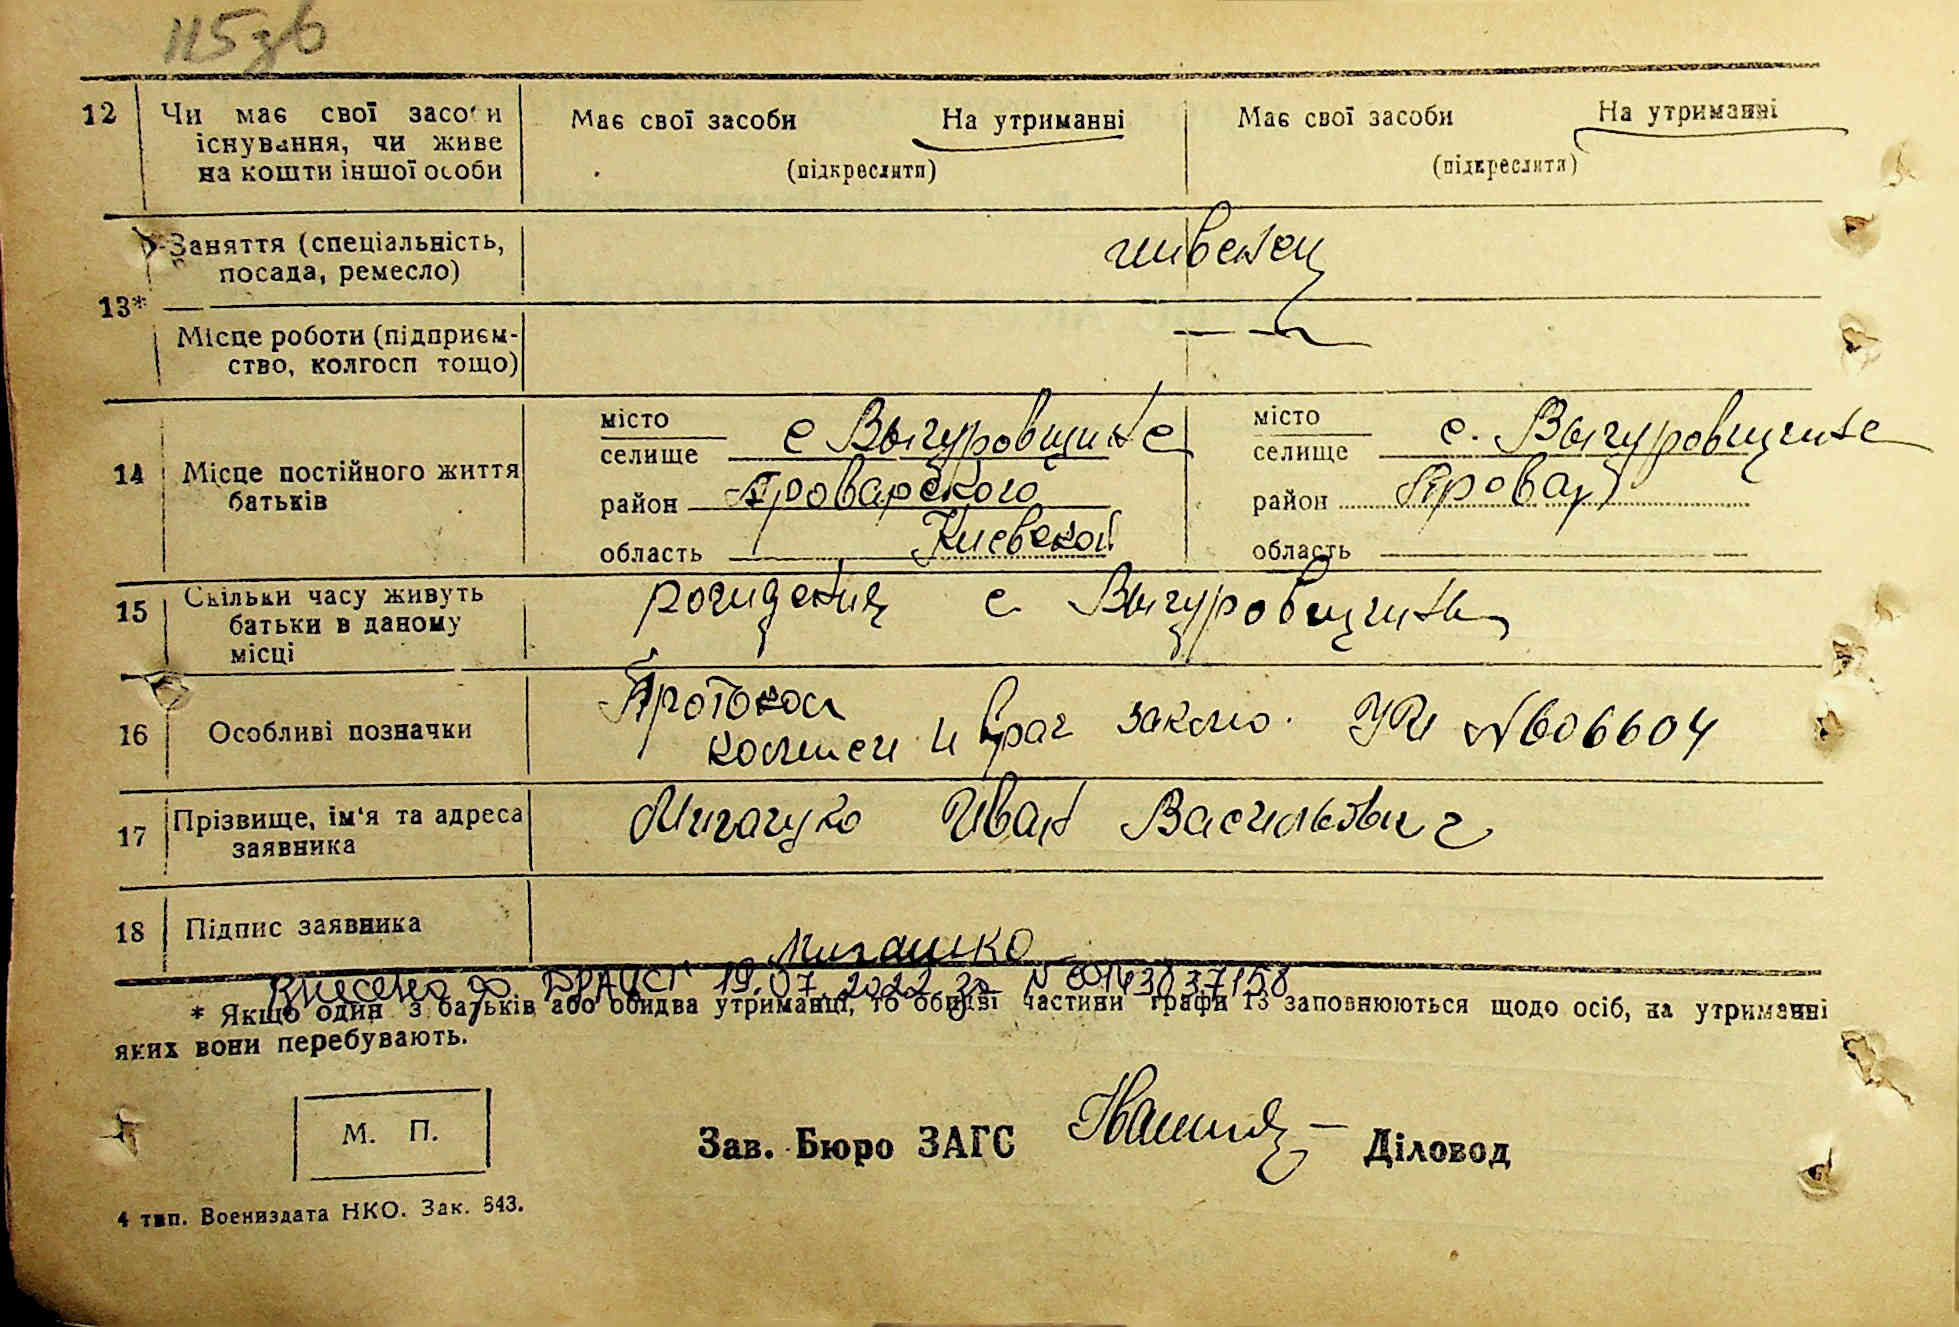 115зв
12 Чи має свої засоби Має свої засоби На утриманні Має свої засоби На утриманні
існування, чи живе (підкреслити) (підкреслити)
на кошти іншої особи
Заняття (спеціальність,
посада, ремесло)
13*
Місце роботи (підприєм-
ство, колгосп тощо)
14 Місце постійного життя
батьків
місто
селище с Выгуровщине
район Броварского
область Киевской
місто
селище с. Выгуровщине
район Бровар
область
15 Скільки часу живуть
батьки в даному
місці
рождения с Выгуровщины
16 Особливі позначки
Протокол
комисси и врач заключ. УИ №606604
17 Прізвище, ім'я та адреса
заявника
Иван Васильевич
18 Підпис заявника
Мигашко
Внесено до ДРАЦСГ 19.07.2022 за N 00143837158
* Якщо один з батьків або обидва утриманці, то обидві частини графи 13 заповнюються щодо осіб, на утриманні
яких вони перебувають.
М. П.
Зав. Бюро ЗАГС Діловод
4 тип. Воениздата НКО. Зак. 843.